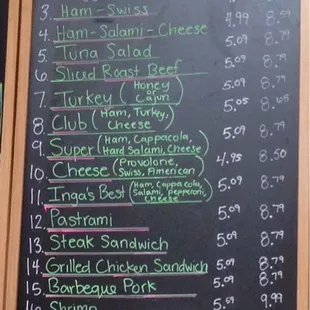 3. Ham-Swiss 4.99 8.59
4. Ham-Salami-Cheese 5.09 8.79
5. Tuna Salad 5.09 8.79
6. Sliced Roast Beef 5.09 8.79
7. Turkey (Honey or Cajun) 5.05 8.65
8. Club (Ham, Turkey, Cheese)
9. Super (Ham, Cappacola, Hard Salami, Cheese) 5.09 8.79
10. Cheese (Provolone, Swiss, American) 4.95 8.50
11. Inga's Best (Ham, Cappacola, Salami, Pepperoni, Cheese) 5.09 8.79
12. Pastrami 5.09 8.79
13. Steak Sandwich 5.09 8.79
14. Grilled Chicken Sandwich 5.09 8.79
15. Barbeque Pork 5.09 8.79
Shrimp 5.59 9.99